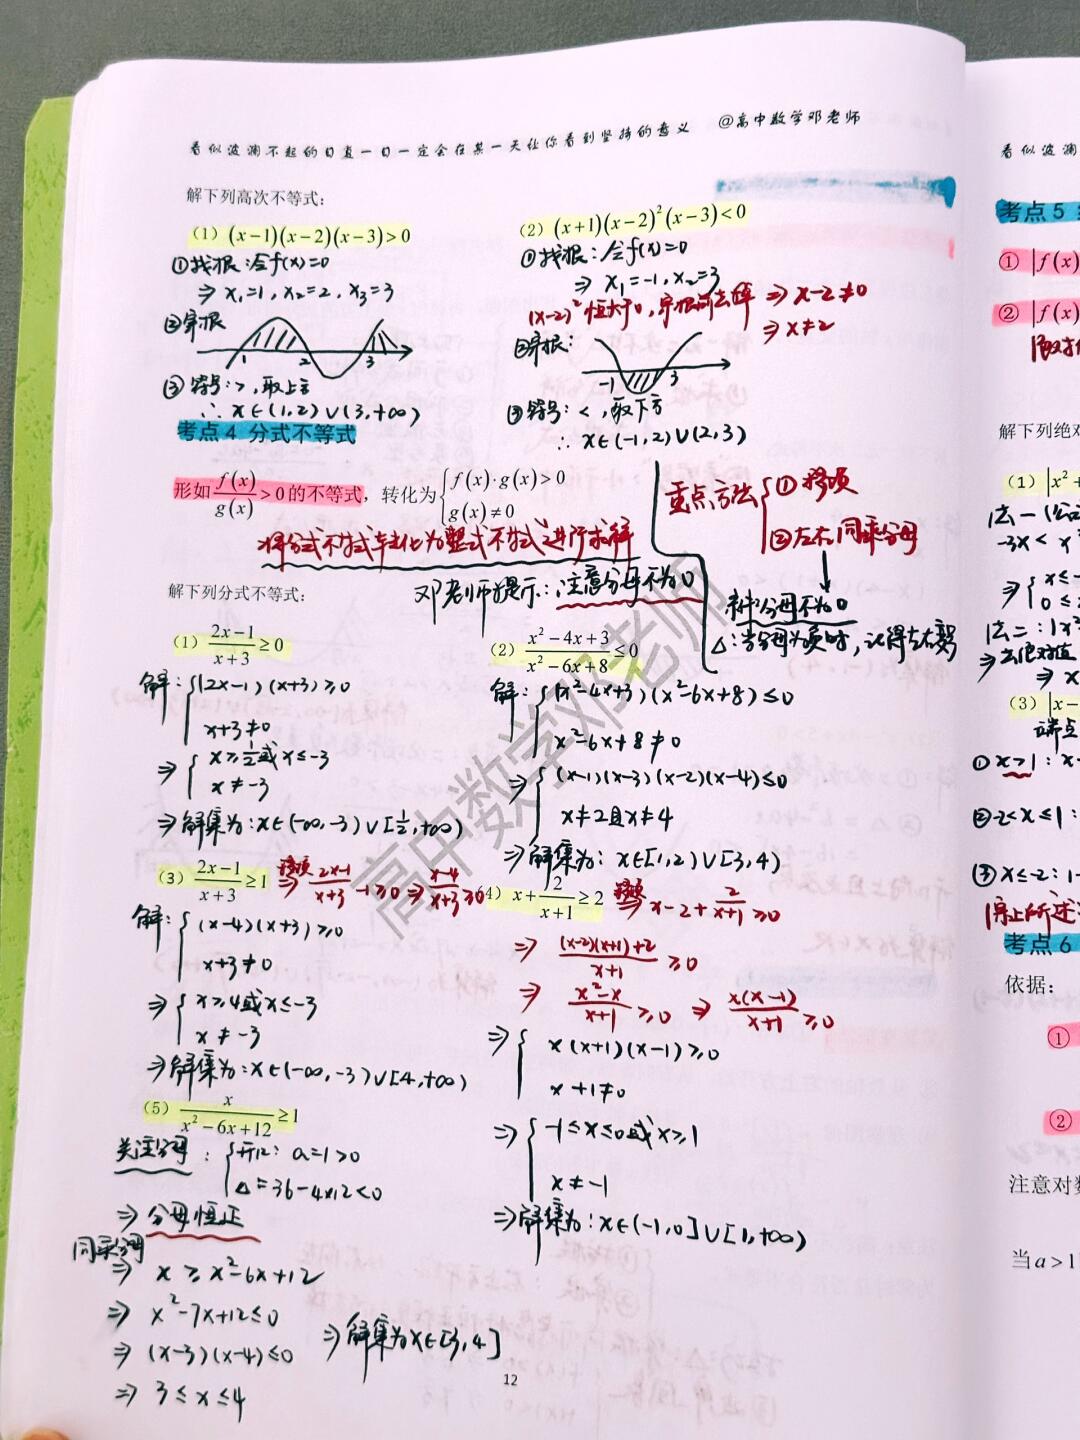 看似波澜不起的日复一日一定会在某一天让你看到坚持的意义 @高中数学邓老师
解下列高次不等式:
(1) (x-1)(x-2)(x-3)>0
①找根:令f(x)=0
⇒ x₁=1, x₂=2, x₃=3
②穿根
1 2 3
③符号:>,取上方
∴ x∈(1,2)∪(3,+∞)
(2) (x+1)(x-2)²(x-3)<0
①找根:令f(x)=0
⇒ x₁=-1, x₂=3
(x-2)²恒大于0,穿根前去掉 ⇒ x-2≠0
⇒ x≠2
②穿根:
-1 3
③符号:<,取下方
∴ x∈(-1,2)∪(2,3)
考点4 分式不等式
形如 f(x)/g(x) >0 的不等式,转化为 { f(x)·g(x)>0
g(x)≠0
将分式不等式转化为整式不等式进行求解
重点方法 { ①移项
②左右同乘分母
邓老师提示:注意分母不为0
分母不为0
△:当分母为负时,记得左右
解下列分式不等式:
(1) (2x-1)/(x+3) ≥0
解: { (2x-1)(x+3)≥0
x+3≠0
⇒ { x≥1/2或x≤-3
x≠-3
⇒解集为:x∈(-∞,-3)∪[1/2,+∞)
(2) (x²-4x+3)/(x²-6x+8) ≤0
解: { (x²-4x+3)(x²-6x+8)≤0
x²-6x+8≠0
⇒ { (x-1)(x-3)(x-2)(x-4)≤0
x≠2且x≠4
⇒解集为:x∈[1,2)∪[3,4)
(3) (2x-1)/(x+3) ≥1 移项⇒ (2x-1)/(x+3) -1≥0 ⇒ (x-4)/(x+3) ≥0
解: { (x-4)(x+3)≥0
x+3≠0
⇒ { x≥4或x≤-3
x≠-3
⇒解集为:x∈(-∞,-3)∪[4,+∞)
(4) x+2/(x+1) ≥2 移项⇒ x-2+2/(x+1) ≥0
⇒ ((x-2)(x+1)+2)/(x+1) ≥0
⇒ (x²-x)/(x+1) ≥0 ⇒ x(x-1)/(x+1) ≥0
⇒ { x(x+1)(x-1)≥0
x+1≠0
⇒ { -1≤x≤0或x≥1
x≠-1
⇒解集为:x∈(-1,0]∪[1,+∞)
(5) x/(x²-6x+12) ≥1
关注分母: { 开口:a=1>0
△=36-4×12<0
⇒ 分母恒正
同乘分母
⇒ x≥x²-6x+12
⇒ x²-7x+12≤0
⇒ (x-3)(x-4)≤0
⇒ 3≤x≤4
⇒解集为x∈[3,4]
12
高中数学邓老师
看似波澜
考点5
① |f(x)
② |f(x)
解下列绝对
(1) |x²+
法一
-3x<x
⇒ { x≤-
0≤
法二:|x²
⇒去绝对值
⇒ x
(3) |x-
端点
①x>1:x-
②-2<x≤1:
③x≤-2:1-
综上所述
考点6
依据:
①
②
注意对数
当a>1